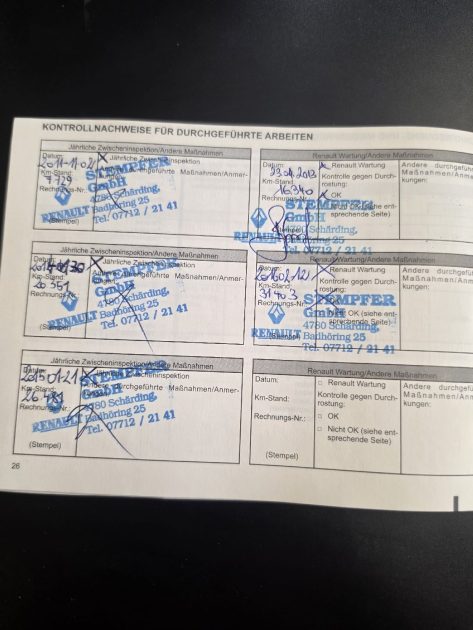 KONTROLLNACHWEISE FÜR DURCHGEFÜHRTE ARBEITEN
Jährliche Zwischeninspektion/Andere Maßnahmen
Datum:
2011-11-02
Jährliche Zwischeninspektion
Km-Stand:
7.729
Andere durchgeführte Maßnahmen/Anmer-
Rechnungs-Nr.:
STEMPFER
GmbH
4780 Schärding,
Badhöring 25
RENAULT Tel. 07712 / 21 41
(Stempel)
Renault Wartung/Andere Maßnahmen
Datum:
23.04.2013
Renault Wartung
Andere durchgefü
Km-Stand:
16340
Kontrolle gegen Durch-
Maßnahmen/Anm
rostung:
kungen:
Rechnungs-Nr.:
OK
OK (siehe ent-
sprechende Seite)
STEMPFER
GmbH
Schärding,
Badhöring 25
RENAULT Tel. 07712 / 21 41
Jährliche Zwischeninspektion/Andere Maßnahmen
Datum:
Zwischeninspektion
Km-Stand:
20 351
durchgeführte Maßnahmen/Anmer-
Rechnungs-Nr.:
STEMPFER
GmbH
4780 Schärding,
Badhöring 25
RENAULT Tel. 07712 / 21 41
(Stempel)
Renault Wartung/Andere Maßnahmen
Datum:
Renault Wartung
Andere durchgefü
Km-Stand:
31403
Kontrolle gegen Durch-
Maßnahmen/Anm
rostung:
kungen:
Rechnungs-Nr.
OK (siehe ent-
sprechende Seite)
STEMPFER
GmbH
4780 Schärding,
Badhöring 25
RENAULT Tel. 07712 / 21 41
Jährliche Zwischeninspektion/Andere Maßnahmen
Datum:
2015-01-21
Km-Stand:
durchgeführte Maßnahmen/Anmer-
Rechnungs-Nr.:
STEMPFER
GmbH
4780 Schärding,
Badhöring 25
RENAULT Tel. 07712 / 21 41
(Stempel)
Renault Wartung/Andere Maßnahmen
Datum:
Renault Wartung
Andere durchgefü
Km-Stand:
Kontrolle gegen Durch-
Maßnahmen/Anm
rostung:
kungen:
Rechnungs-Nr.:
OK
Nicht OK (siehe ent-
sprechende Seite)
(Stempel)
26